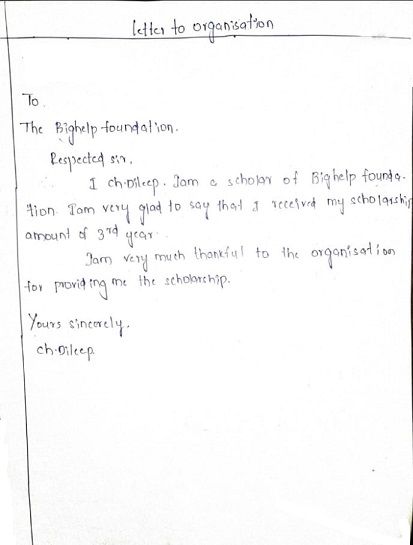 letter to organisation
To.
The Bighelp foundation.
Respected sir,
I ch.Dileep. Iam a scholar of Bighelp founda-
tion. Iam very glad to say that I received my scholarship
amount of 3rd year.
Iam very much thankful to the organisation
for providing me the scholarship.
Yours sincerely,
ch.Dileep